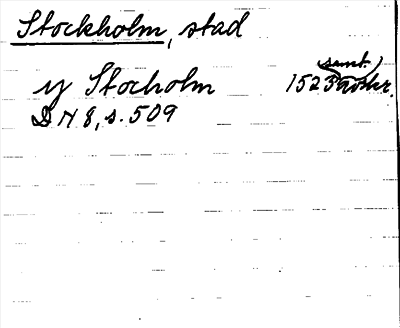 Stockholm, stad
y Stocholm 1523 avskr. (samt.)
DN 8, s. 509